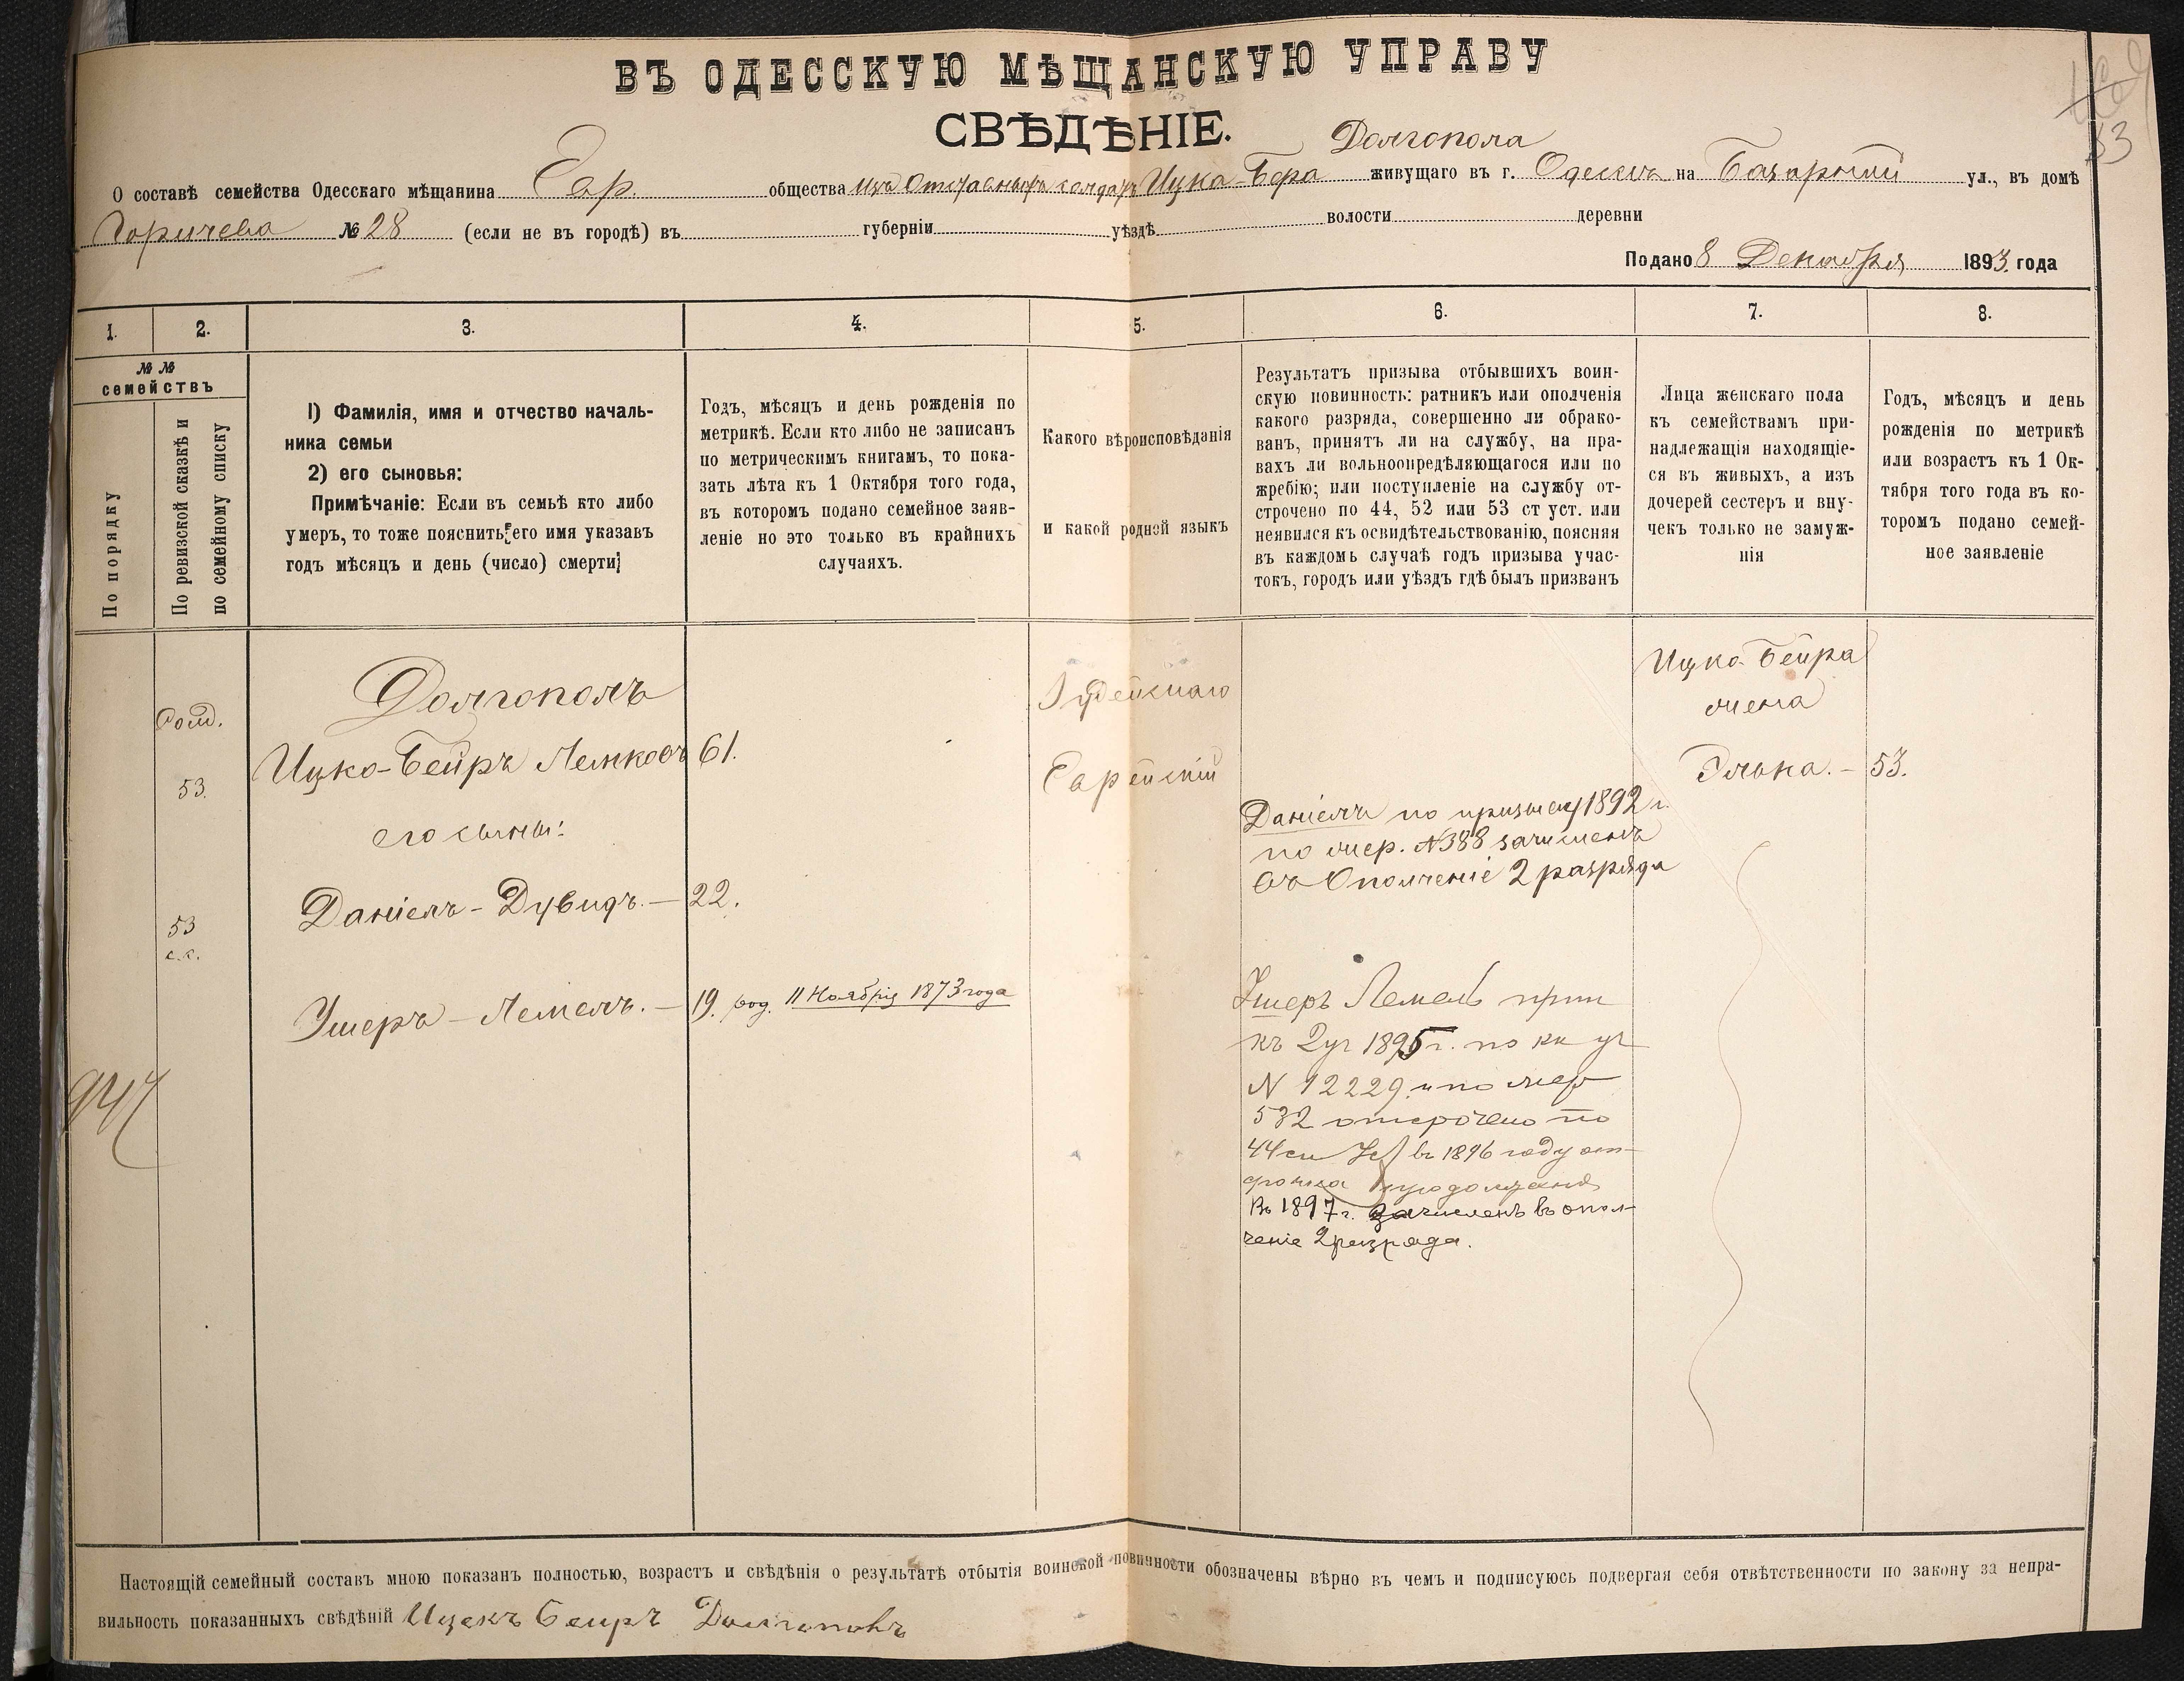 ВЪ ОДЕССКУЮ МѢЩАНСКУЮ УПРАВУ
СВѢДѢНІЕ.
53
Долгопола
О составѣ семейства Одесскаго мѣщанина Евр. общества изъ Отставныхъ солдатъ Ицка-Бера живущаго въ г. Одессѣ на Базарной ул., въ домѣ
№ 28 (если не въ городѣ) въ губерніи уѣздѣ волости деревни
Подано 8 Декабря 1893 года
1. 2. 3. 4. 5. 6. 7. 8.
№ №
семействъ
По порядку
По ревизской сказкѣ и
по семейному списку
1) Фамилія, имя и отчество началь-
ника семьи
2) его сыновья:
Примѣчаніе: Если въ семьѣ кто либо
умеръ, то тоже пояснить его имя указавъ
годъ мѣсяцъ и день (число) смерти
Годъ, мѣсяцъ и день рожденія по
метрикѣ. Если кто либо не записанъ
по метрическимъ книгамъ, то пока-
зать лѣта къ 1 Октября того года,
въ которомъ подано семейное заяв-
леніе но это только въ крайнихъ
случаяхъ.
Какого вѣроисповѣданія
и какой родной языкъ
Результатъ призыва отбывшихъ воин-
скую повинность: ратникъ или ополченія
какого разряда, совершенно ли обрако-
ванъ, принятъ ли на службу, на пра-
вахъ ли вольноопредѣляющагося или по
жребію; или поступленіе на службу от-
строчено по 44, 52 или 53 ст уст. или
неявился къ освидѣтельствованію, поясняя
въ каждомъ случаѣ годъ призыва учас-
токъ, городъ или уѣздъ гдѣ былъ призванъ
Лица женскаго пола
къ семействамъ при-
надлежащія находящіе-
ся въ живыхъ, а изъ
дочерей сестеръ и вну-
чекъ только не замуж-
нія
Годъ, мѣсяцъ и день
рожденія по метрикѣ
или возрастъ къ 1 Ок-
тября того года въ ко-
торомъ подано семей-
ное заявленіе
Солд.
53.
Долгополъ
Ицко-Бейръ Лемковъ 61.
его сыны:
53
с.с.
Даніелъ-Дувидъ. — 22.
Ушеръ-Лемелъ. — 19. род. 11 Ноября 1873 года
947
Іудейскаго
Еврейскій
Даніелъ по призыву 1892 г.
по жер. №388 зачисленъ
въ Ополченіе 2 разряда
Ушеръ Лемель прип
къ 2 уч 1895 г. по кн уч
N 12229 и по жер
532 отсрочено по
44 ст Уст въ 1896 году от-
срочка продолжена
Въ 1897 г. зачисленъ въ опол-
ченіе 2 разряда.
Ицко-Бейра
жена
Элька. — 53.
Настоящій семейный составъ мною показанъ полностью, возрастъ и свѣдѣнія о результатѣ отбытія воинской повинности обозначены вѣрно въ чемъ и подписуюсь подвергая себя отвѣтственности по закону за непра-
вильность показанныхъ свѣдѣній Ицекъ Беиръ Долгополъ